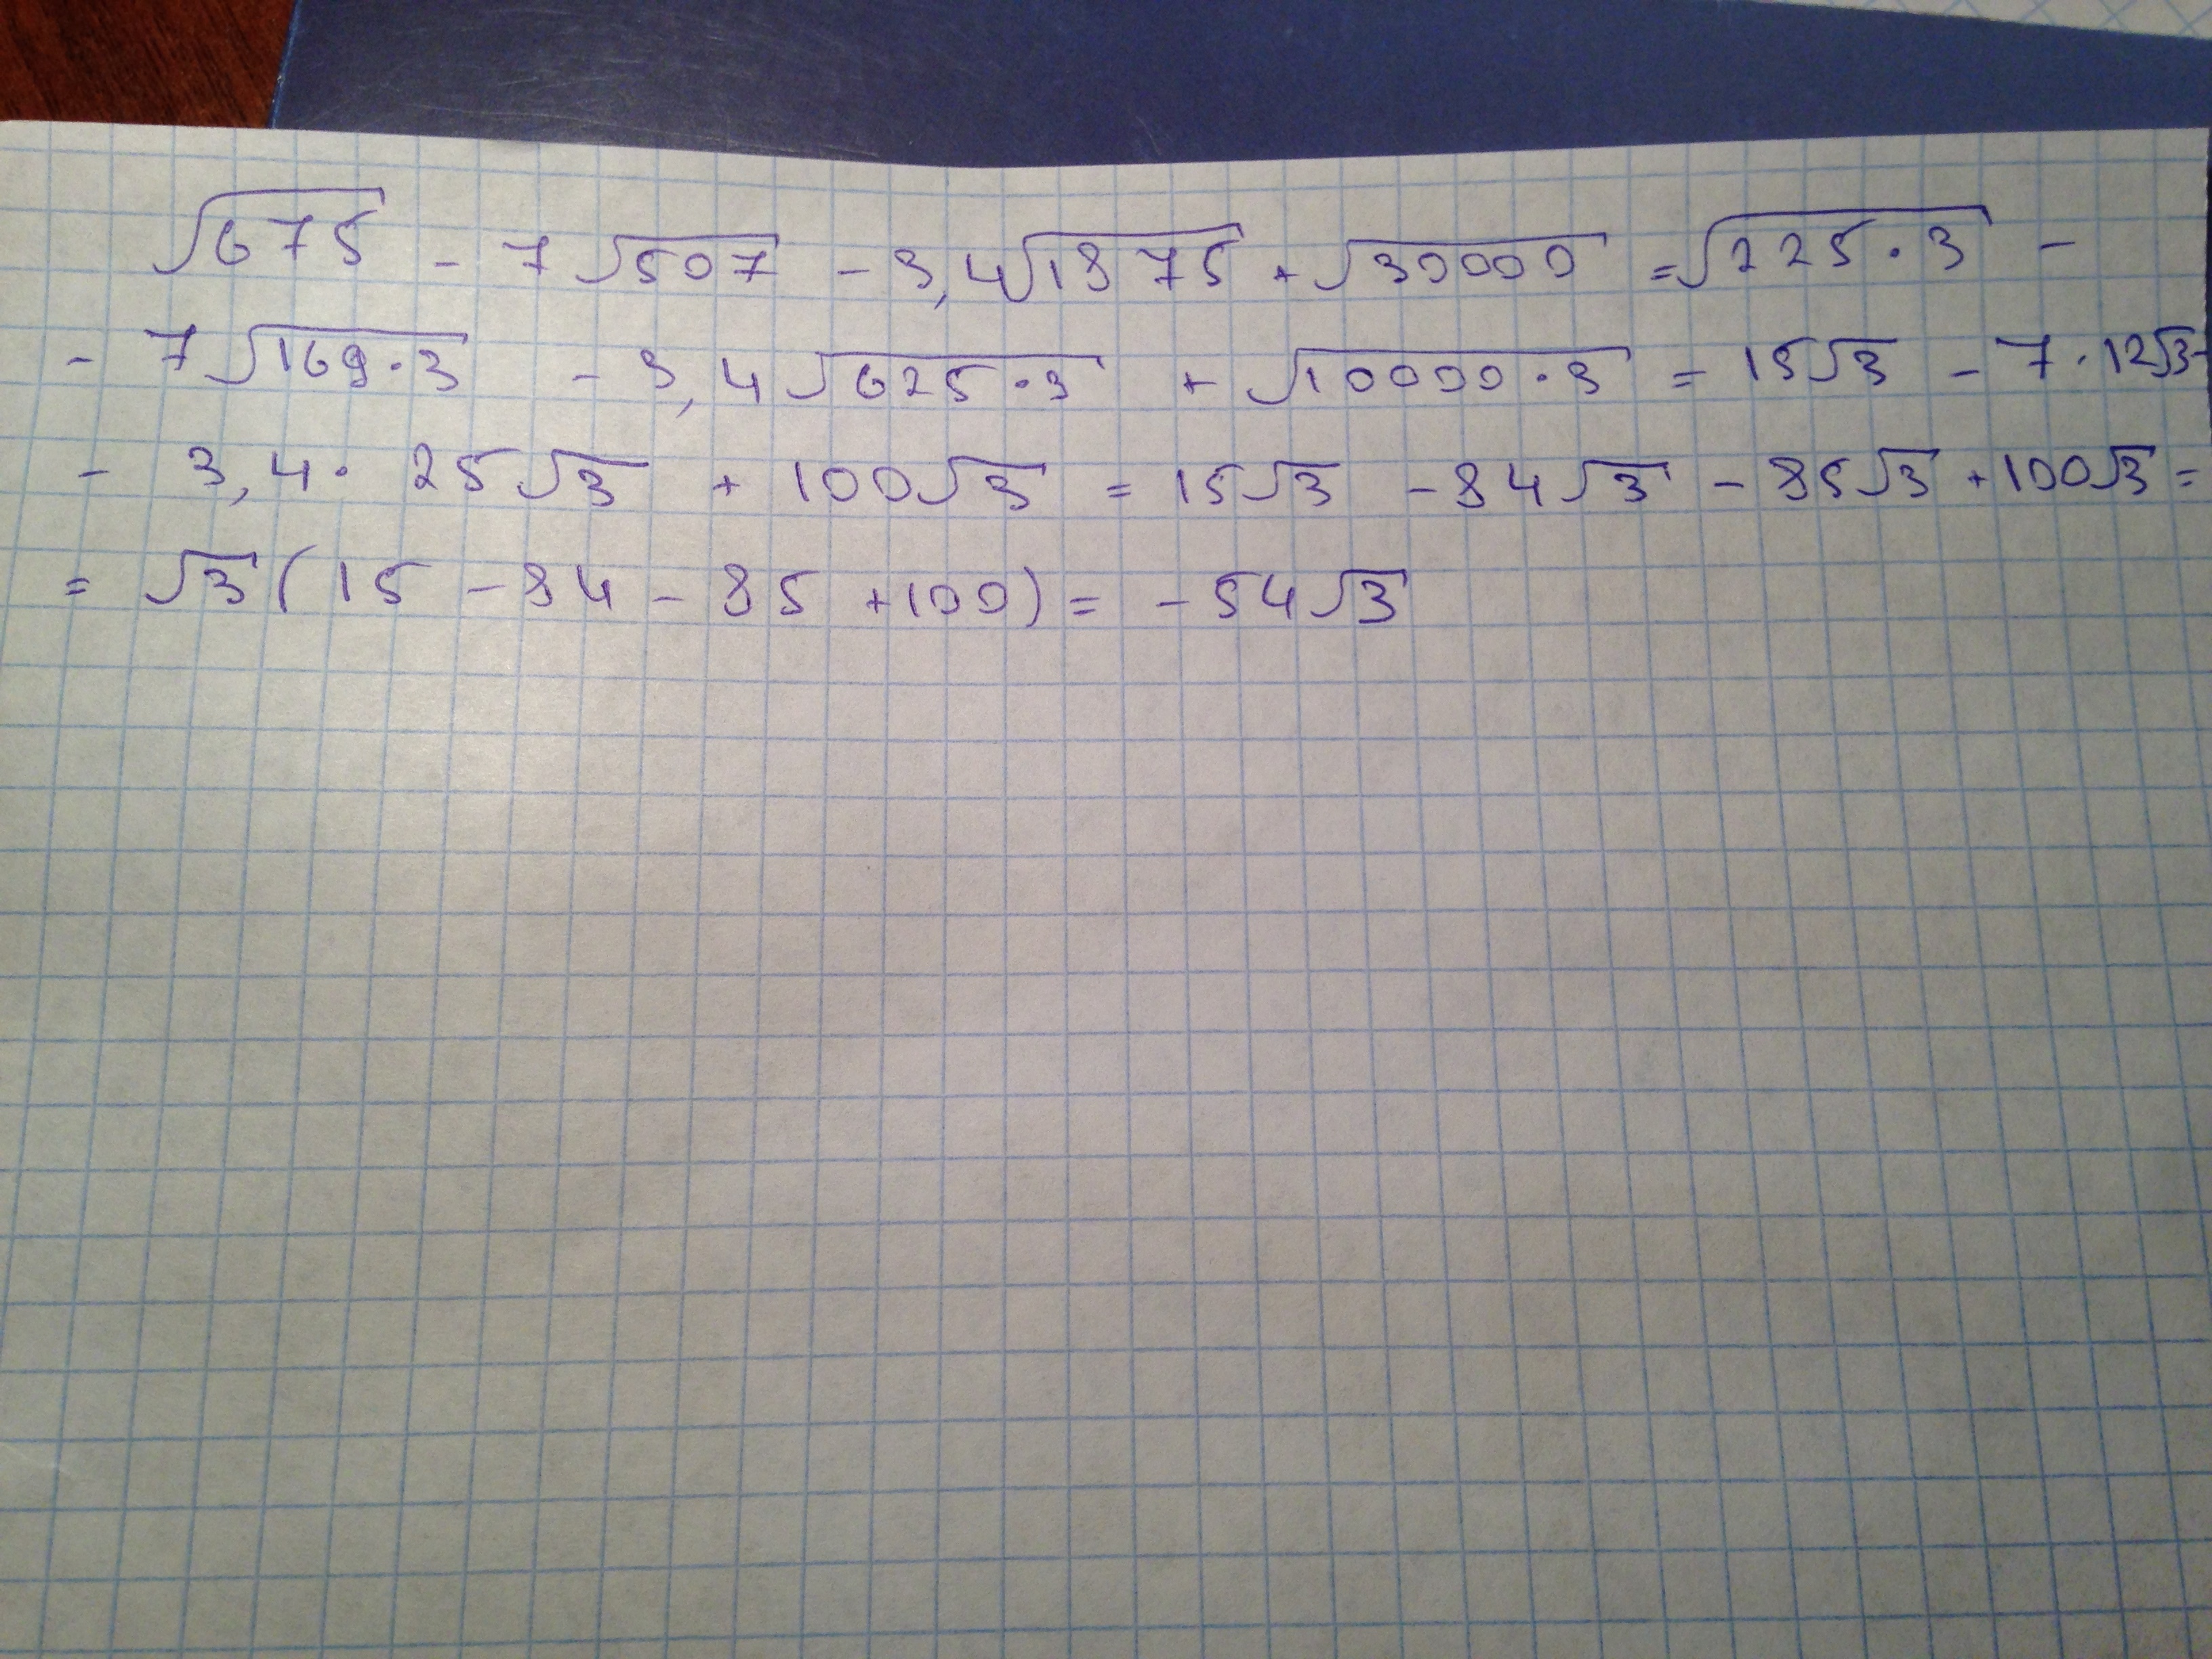 √675 - 7√507 - 3,4√1875 + √30000 = √225·3 -
- 7√169·3 - 3,4√625·3 + √10000·3 = 15√3 - 7·12√3 -
- 3,4· 25√3 + 100√3 = 15√3 - 84√3 - 85√3 + 100√3 =
= √3 (15 - 84 - 85 + 100) = - 54√3